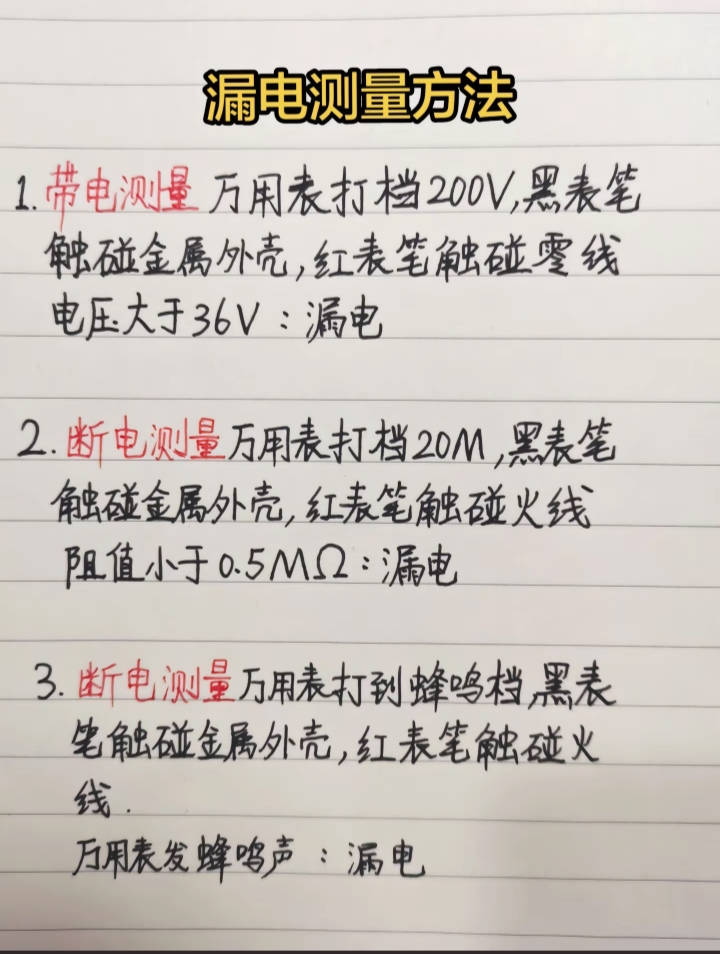 漏电测量方法
1.带电测量 万用表打档200V,黑表笔
触碰金属外壳,红表笔触碰零线
电压大于36V:漏电
2.断电测量万用表打档20M,黑表笔
触碰金属外壳,红表笔触碰火线
阻值小于0.5MΩ:漏电
3.断电测量万用表打到蜂鸣档,黑表
笔触碰金属外壳,红表笔触碰火
线.
万用表发蜂鸣声:漏电